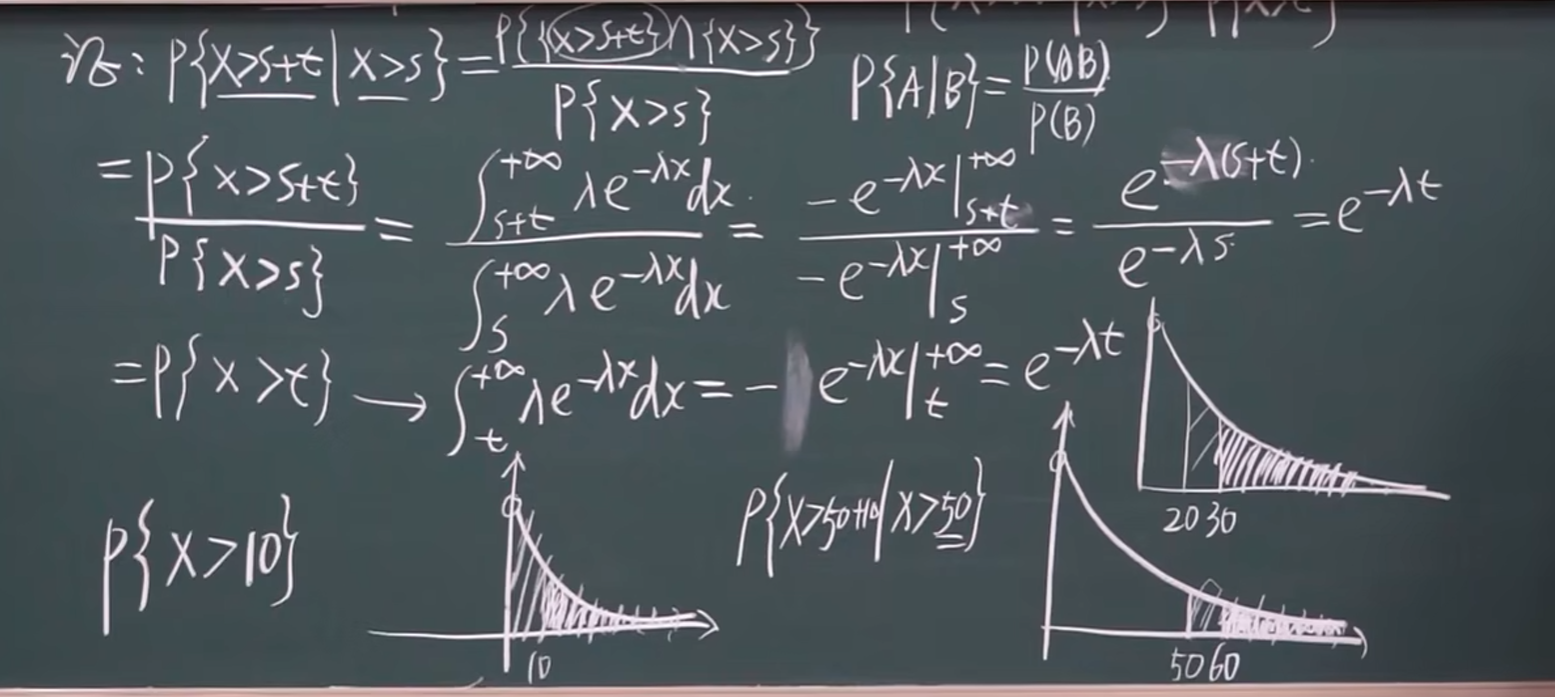 证: P{X>s+t | X>s} = P{{X>s+t}∩{X>s}} / P{X>s}
P{A|B} = P(AB) / P(B)
= P{X>s+t} / P{X>s} = ∫_{s+t}^{+∞} λe^{-λx}dx / ∫_{s}^{+∞} λe^{-λx}dx = -e^{-λx}|_{s+t}^{+∞} / -e^{-λx}|_{s}^{+∞} = e^{-λ(s+t)} / e^{-λs} = e^{-λt}
= P{X>t} → ∫_{t}^{+∞} λe^{-λx}dx = -e^{-λx}|_{t}^{+∞} = e^{-λt}
20 30
P{X>10}
10
P{X>50+10|X>50}
50 60